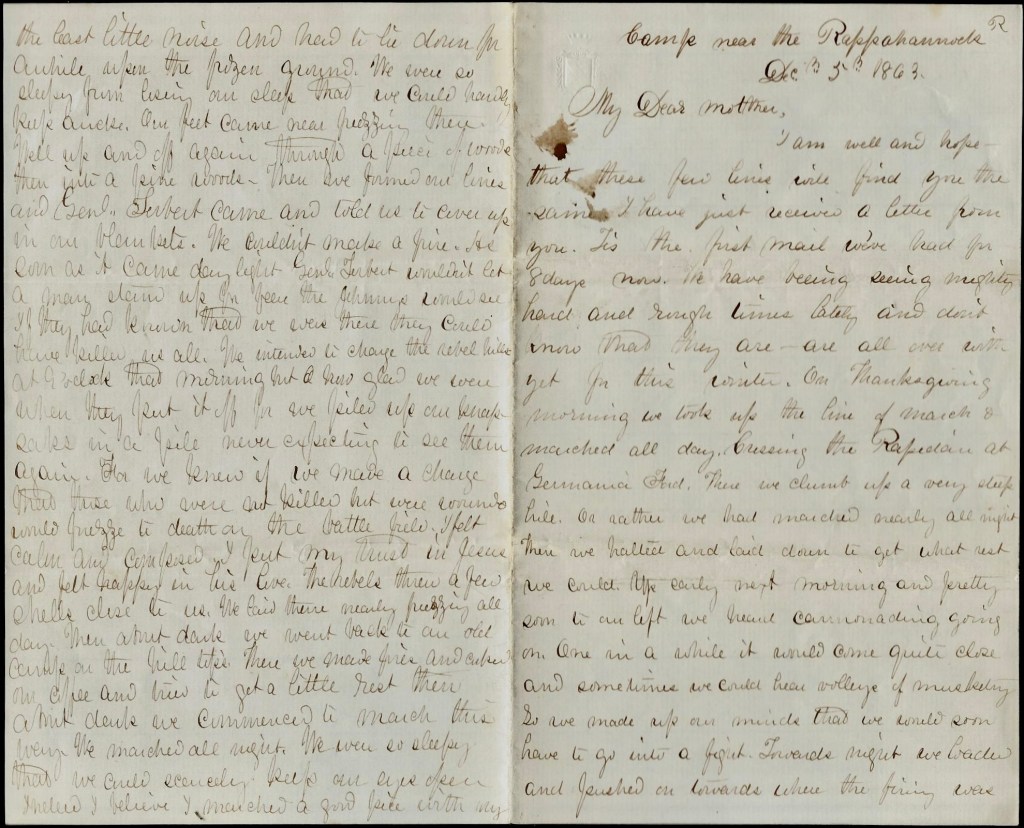 R
Camp near the Rappahannock
Dec 5th 1863.
My Dear mother,
I am well and hope
that these few lines will find you the
same. I have just received a letter from
you. Tis the first mail we've had for
8 days now. We have beeing seeing mighty
hard and rough times lately and don't
know that they are - are all over with
yet for this winter. On Thanksgiving
morning we took up the line of march &
marched all day. Crossing the Rapidan at
Germania Ford. There we clumb up a very steep
hill. Or rather we had marched nearly all night
Then we halted and laid down to get what rest
we could. Up early next morning and pretty
soon to our left we heard cannonading going
on. One in a while it would come quite close
and sometimes we could hear volleys of musketry
So we made up our minds that we would soon
have to go into a fight. Towards night we loaded
and pushed on towards where the firing was
the least little noise and had to lie down for
awhile upon the frozen ground. We were so
sleepy from losing our sleep that we could hardly
keep awake. Our feet came near freezzing there.
Well up and off again through a piece of woods
then into a pine woods - Then we formed our lines
and Genl. Torbert came and told us to cover up
in our blankets. We couldn't make a fire. As
soon as it came daylight Genl Torbert wouldn't let
a man stand up for fear the Johnnys would see
If they had known that we were there they could
have killed us all. We intended to charge the rebel hills
at 9 o'clock that morning but O how glad we were
when they put it off for we piled up our knap-
sacks in a pile never expecting to see them
again. For we knew if we made a charge
that those who were not killed but were wounded
would freezze to death on the battle field. I felt
calm and composed. I put my trust in Jesus
and felt happy in his love. The rebels threw a few
shells close to us. We laid there nearly freezzing all
day. Then about dark we went back to our old
camp on the hill tops. There we made fires and cooked
our coffee and tried to get a little rest then
about dark we commenced to march this
way. We marched all night. We were so sleepy
that we could scarcely keep our eyes open
Indeed I believe I marched a good piece with my